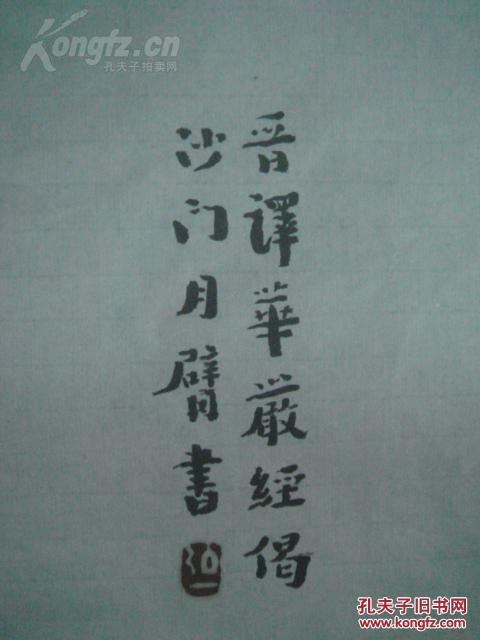 Kongfz.cn
孔夫子拍卖网
晋譯華嚴經偈
沙门月臂書
孔夫子旧书网
www.kongfz.com